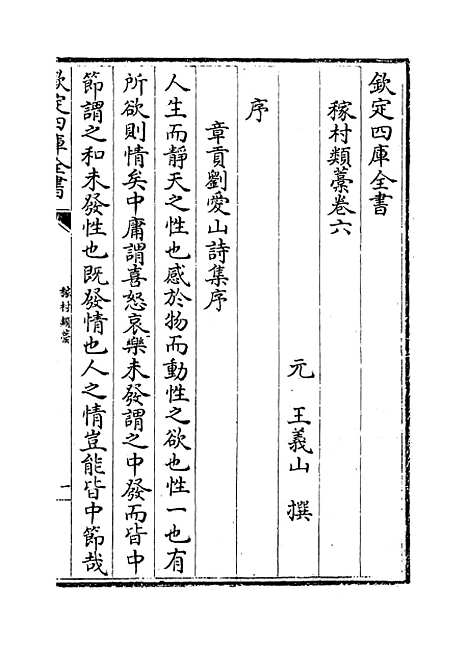 欽定四庫全書
稼村類藁卷六
元 王義山 撰
序
章貢劉愛山詩集序
人生而靜天之性也感於物而動性之欲也性一也有
所欲則情矣中庸謂喜怒哀樂未發謂之中發而皆中
節謂之和未發性也既發情也人之情豈能皆中節哉
欽定四庫全書
稼村類藁
一